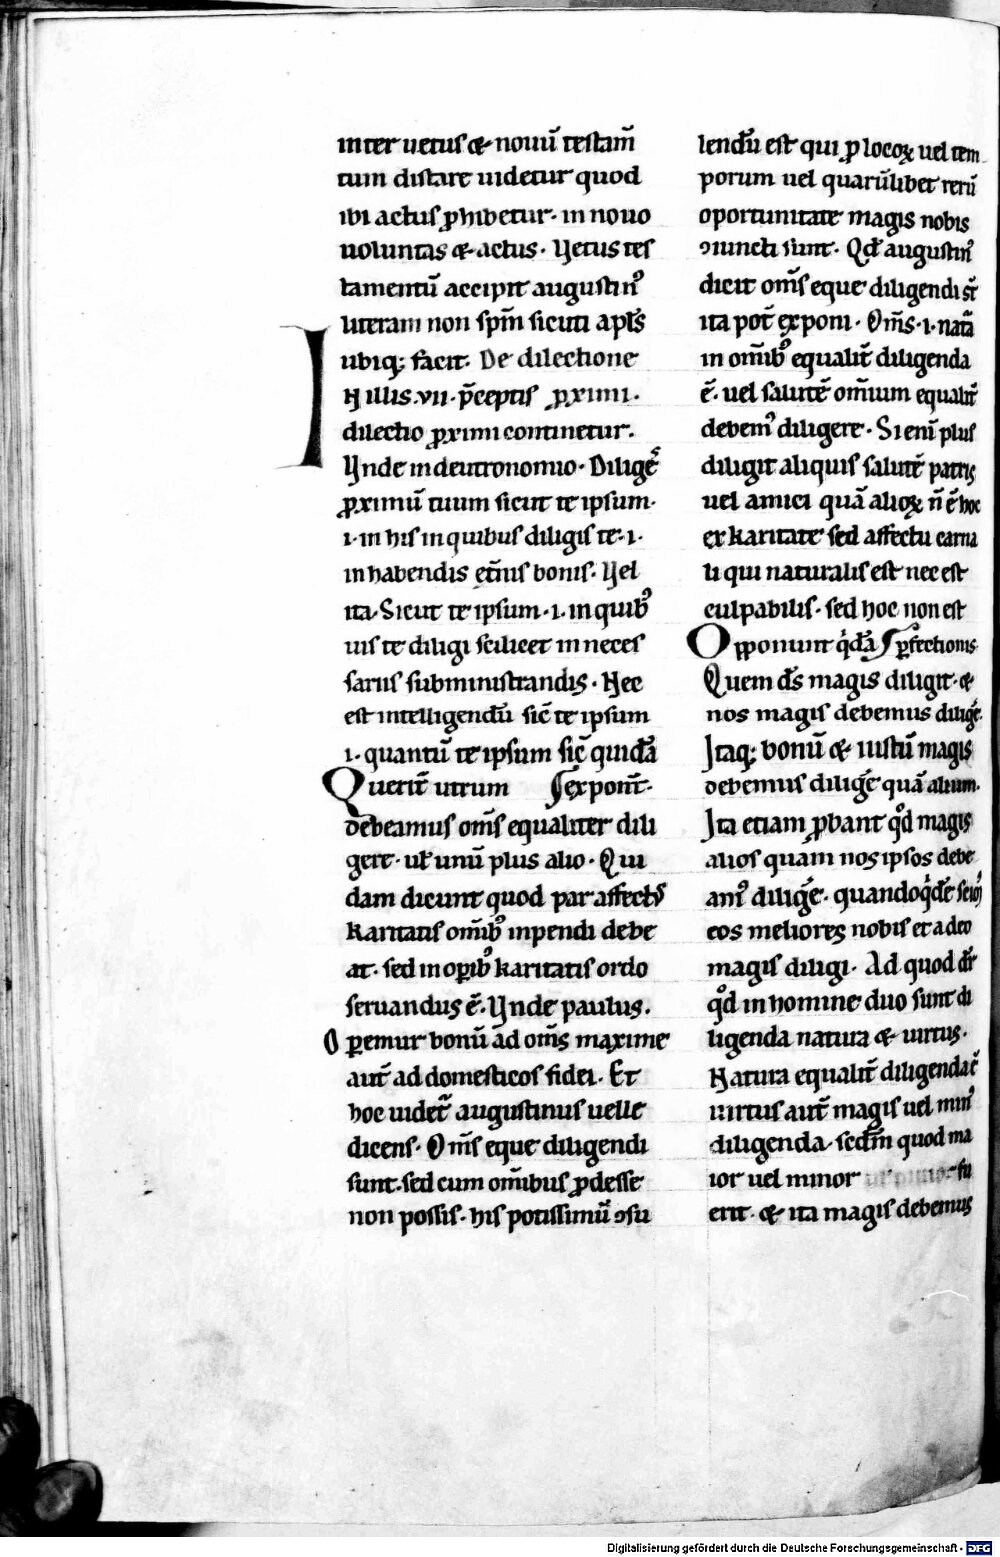 inter uetus & nouũ testam̃
tum distare uidetur quod
ibi actus ꝓhibetur· in nouo
uoluntas & actus· Vetus tes
tamentũ accipit augustinꝰ
literam non spm̃ sicuti apłs
ubiq; facit· De dilectione
IN illis .vii. p̃ceptis ꝓximi·
dilectio ꝓximi continetur·
Vnde in deutronomio· Diligẽ
ꝓximũ tuum sicut te ipsum·
·i· in his in quibus diligis te ·i·
in habendis et̃nis bonis· Vel
ita· Sicut te ipsum ·i· in quibꝰ
uis te diligi scilicet in neces
sariis subministrandis· Hec
est intelligendũ sic̃ te ipsum
·i· quantũ te ipsum sic̃ quidã
Querit̃ utrum expont̃·
debeamus om̃s equaliter dili
gere· ul̃ unũ plus alio· Qui
dam dicunt quod par affectꝰ
karitatis om̃ibꝰ inpendi debe
at· sed in oꝑibꝰ karitatis ordo
seruandus ẽ· Vnde paulus·
Oꝑemur bonũ ad om̃s maxime
aut̃ ad domesticos fidei· Et
hoc uidet̃ augustinus uelle
dicens· Om̃s eque diligendi
sunt· sed cum om̃ibus ꝓdesse
non possis· his potissimũ ꝯsu
lendũ est qui ꝓ locoꝝ uel tem
porum uel quarũlibet rerũ
oportunitate magis nobis
ꝯiuncti sunt· Qđ augustinꝰ
dicit om̃s eque diligendi st̃
ita pot̃ exponi· Om̃s ·i· natã
in om̃ibꝰ equalit̃ diligenda
ẽ· uel salutẽ om̃ium equalit̃
debemꝰ diligere· Si eni̇̃ plus
diligit aliquis salutẽ patris
uel amici quã alioꝝ ñ ẽ hoc
ex karitate sed affectu carna
li qui naturalis est nec est
culpabilis· sed hoc non est
Opponunt qͥdã ꝑfectionis
Quem ds̃ magis diligit· &
nos magis debemus diligẽ·
Itaq; bonũ & iustũ magis
debemus diligẽ quã alium·
Ita etiam ꝓbant qͦd magis
alios quam nos ipsos debe
amꝰ diligẽ· quandoqͥdẽ scimꝰ
eos meliores nobis et a deo
magis diligi· Ad quod dr̃
qͦd in homine duo sunt di
ligenda natura & uirtus·
Natura equalit̃ diligenda ẽ
uirtus aut̃ magis uel minꝰ
diligenda· sedm̃ quod ma
ior uel minor fu
erit· & ita magis debemus
Digitalisierung gefördert durch die Deutsche Forschungsgemeinschaft · DFG